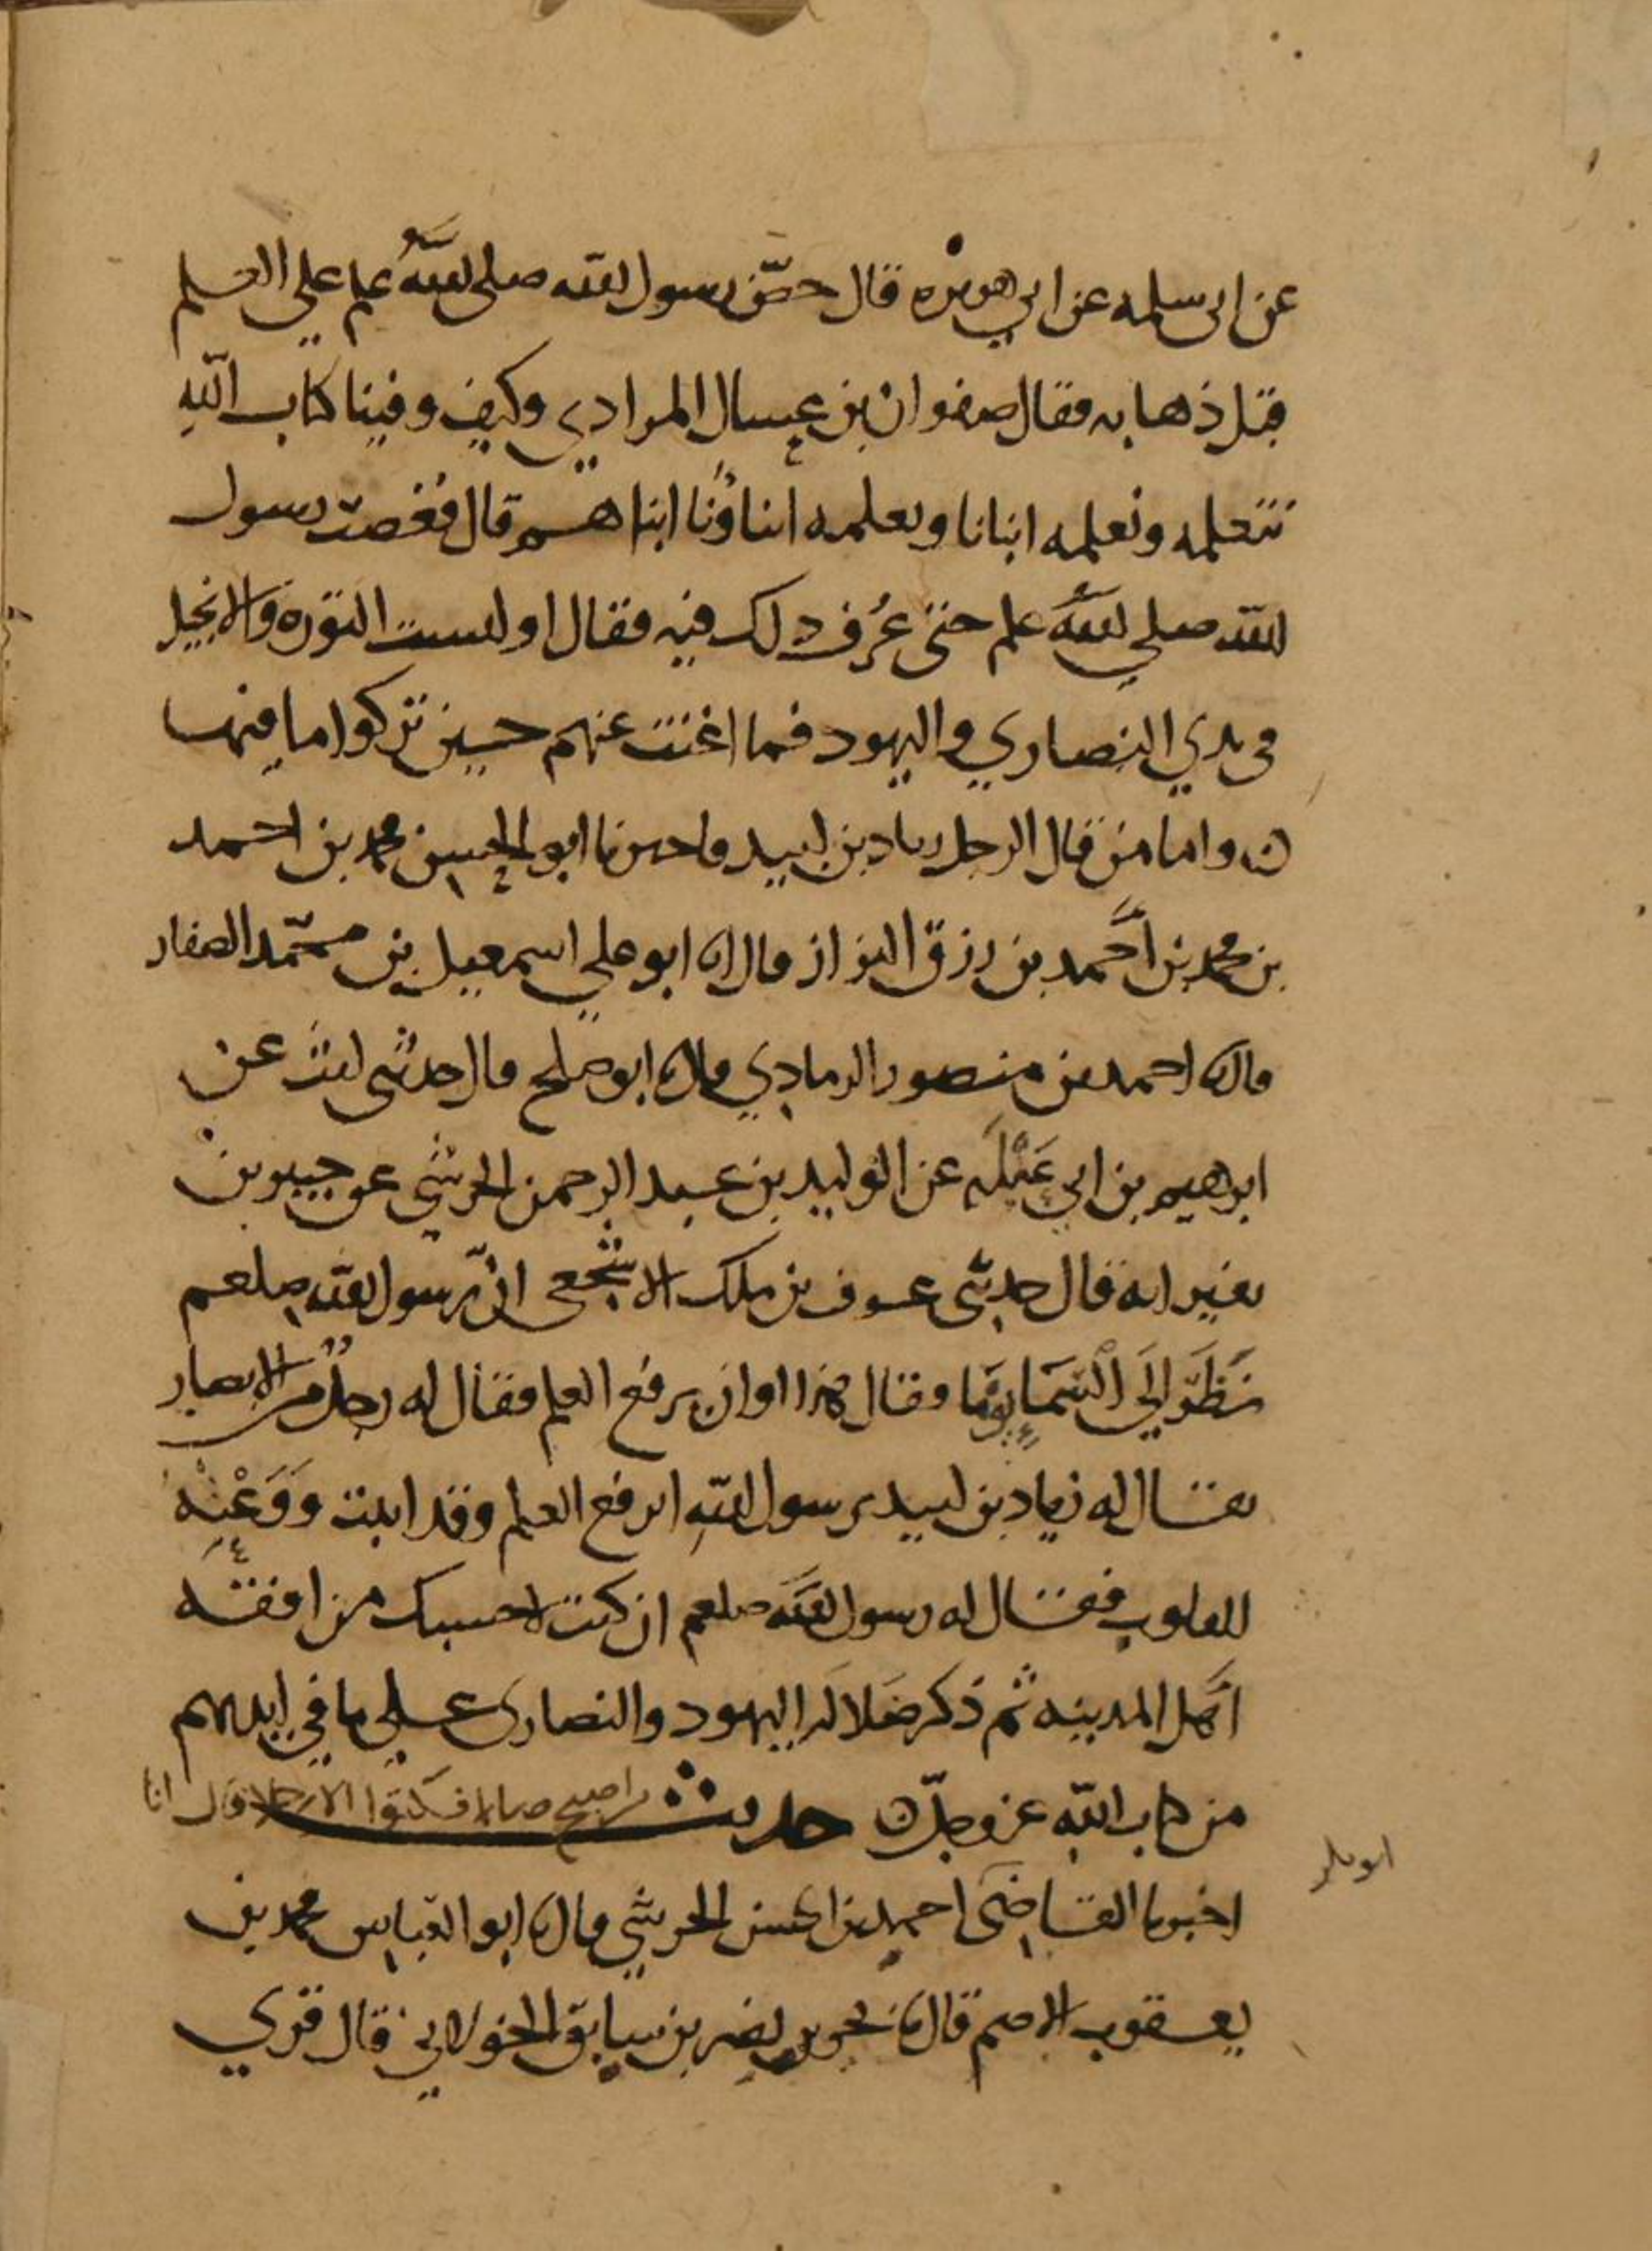 عن ابى سلمه عن ابي هريره قال حضّ رسول الله صلى الله علم علي العلم
قبل ذهابه فقال صفوان بن عسال المرادي وكيف وفينا كتاب الله
نتعلمه ونعلمه ابنانا ويعلمه ابناؤنا ابناهم قال فغضب رسول
الله صلي الله علم حتى عُرف ذلك فيه فقال اوليست التورة والانجيل
فى يدي النصاري واليهود فما اغنت عنهم حين تركوا ما فيهما
ن واما من قال الرجل زياد بن لبيد فاخبرنا ابو الحسين محمد بن احمد
بن محمد بن أحمد بن رزق البزاز قال انا ابو علي اسمعيل بن محمّد الصفار
قال نا احمد بن منصور الرمادي قال نا ابو صلح قال حدثنى ليث عن
ابرهيم بن ابي عَبْلَه عن الوليد بن عبد الرحمن الجرشي عن جبير بن
نفير انه قال حدثنى عوف بن ملك الاشجعى انّ رسول الله صلعم
نَظَرَ اِلَى الْسَمَا يومًا وقال هذا اوان يرفع العلم فقال له رجلٌ من الانصار
يقال له زياد بن لبيد يرسول الله ايرفع العلم وقد اثبت وَوَعَتْه
القلوب فقال له رسول الله صلعم ان كنت لاحسبك من افقه
اهل المدينه ثم ذكر ضلاله اليهود والنصارى على ما في ايديهم
من كتاب الله عز وجلّ ن حديث
اخبرنا القاضى احمد بن الحسن الحرشي قال نا ابو العباس محمد بن
يعقوب الاصم قال نا بحر بن نصر بن سابق الخولاني قال قري